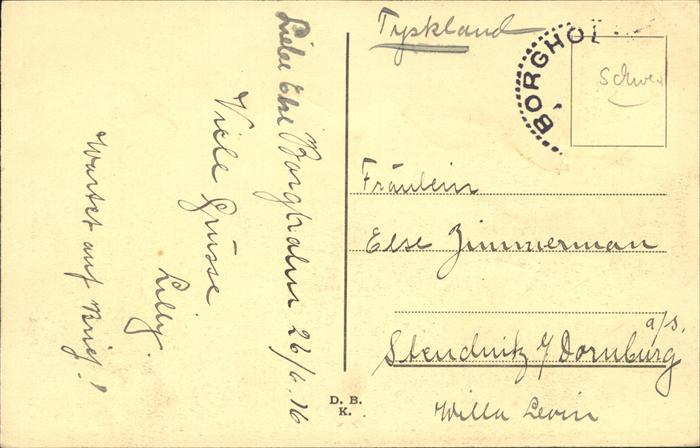 Liebe Else Borgholm 26/6.16
Viele Grüsse.
Lilly.
Wartet auf Brief!
Tyskland
BORGHOL
Schwed
Fräulein
Else Zimmerman
a/s.
Steudnitz b/ Dornburg
Willa Levin
D. B.
K.